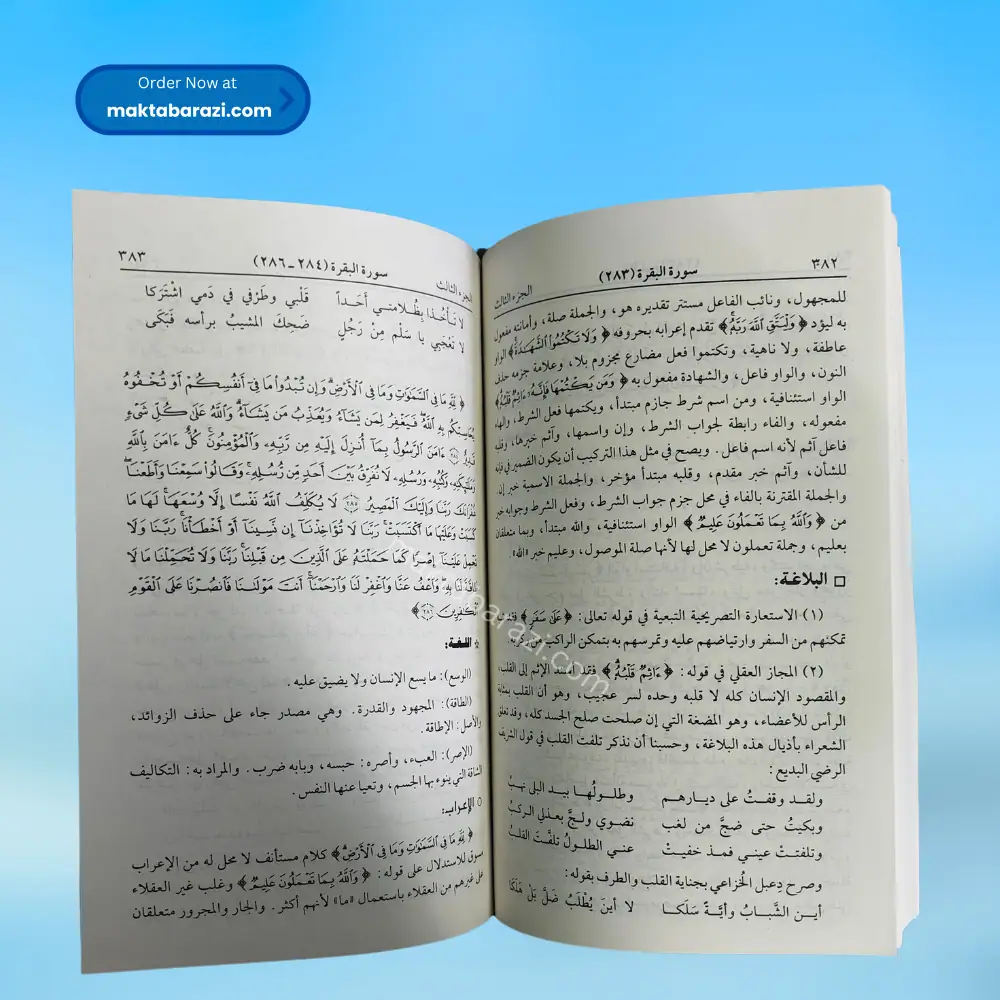 Order Now at
maktabarazi.com
٣٨٢ سورة البقرة (٢٨٣) الجزء الثالث
للمجهول، ونائب الفاعل مستتر تقديره هو، والجملة صلة، وأمانته مفعول
به ليؤد ﴿ وَلْيَتَّقِ اللَّهَ رَبَّهُ ﴾ تقدم إعرابه بحروفه ﴿ وَلَا تَكْتُمُوا الشَّهَادَةَ ﴾ الواو
عاطفة، ولا ناهية، وتكتموا فعل مضارع مجزوم بلا، وعلامة جزمه حذف
النون، والواو فاعل، والشهادة مفعول به ﴿ وَمَن يَكْتُمْهَا فَإِنَّهُ ءَاثِمٌ قَلْبُهُ ﴾
الواو استئنافية، ومن اسم شرط جازم مبتدأ، ويكتمها فعل الشرط، والهاء
مفعوله، والفاء رابطة لجواب الشرط، وإن واسمها، وآثم خبرها، وقلبه
فاعل آثم لأنه اسم فاعل. ويصح في مثل هذا التركيب أن يكون الضمير في فإنه
للشأن، وآثم خبر مقدم، وقلبه مبتدأ مؤخر، والجملة الاسمية خبر إن.
والجملة المقترنة بالفاء في محل جزم جواب الشرط، وفعل الشرط وجوابه خبر
من ﴿ وَاللَّهُ بِمَا تَعْمَلُونَ عَلِيمٌ ﴾ الواو استئنافية، والله مبتدأ، وبما متعلقان
بعليم، وجملة تعملون لا محل لها لأنها صلة الموصول، وعليم خبر «الله».
□ البلاغة:
(١) الاستعارة التصريحية التبعية في قوله تعالى: ﴿ عَلَىٰ سَفَرٍ ﴾ فقد
تمكنهم من السفر وارتياضهم عليه وتمرسهم به بتمكن الراكب من ركوبه.
(٢) المجاز العقلي في قوله: ﴿ ءَاثِمٌ قَلْبُهُ ﴾ فقد أسند الإثم إلى القلب،
والمقصود الإنسان كله لا قلبه وحده لسر عجيب، وهو أن القلب بمثابة
الرأس للأعضاء، وهو المضغة التي إن صلحت صلح الجسد كله، وقد تعلق
الشعراء بأذيال هذه البلاغة، وحسبنا أن نذكر تلفت القلب في قول الشريف
الرضي البديع:
ولقد وقفتُ على ديارهم وطلولُها بيد البلى نهبُ
وبكيتُ حتى ضجَّ من لغب نضوي ولجَّ بعذلي الركبُ
وتلفتتْ عيني فمذ خفيتْ عني الطلولُ تلفَّتَ القلبُ
وصرح دعبل الخُزاعي بجناية القلب والطرف بقوله:
أين الشَّبابُ وأيَّةً سَلَكا لا أينَ يُطْلَبُ ضَلَّ بَلْ هَلَكا
الجزء الثالث سورة البقرة (٢٨٤-٢٨٦) ٣٨٣
لا تأخُذا بِظُلامتي أحَداً قَلْبي وطَرْفي في دَمي اشْتَرَكا
لا تَعْجَبي يا سَلْم مِنْ رَجُلٍ ضَحِكَ المشيبُ برأسه فَبَكَى
﴿ لِلَّهِ مَا فِي السَّمَاوَاتِ وَمَا فِي الْأَرْضِ وَإِن تُبْدُوا مَا فِي أَنفُسِكُمْ أَوْ تُخْفُوهُ
يُحَاسِبْكُم بِهِ اللَّهُ فَيَغْفِرُ لِمَن يَشَاءُ وَيُعَذِّبُ مَن يَشَاءُ وَاللَّهُ عَلَىٰ كُلِّ شَيْءٍ
قَدِيرٌ ﴿٢٨٤﴾ ءَامَنَ الرَّسُولُ بِمَا أُنزِلَ إِلَيْهِ مِن رَّبِّهِ وَالْمُؤْمِنُونَ كُلٌّ ءَامَنَ بِاللَّهِ
وَمَلَائِكَتِهِ وَكُتُبِهِ وَرُسُلِهِ لَا نُفَرِّقُ بَيْنَ أَحَدٍ مِّن رُّسُلِهِ وَقَالُوا سَمِعْنَا وَأَطَعْنَا
غُفْرَانَكَ رَبَّنَا وَإِلَيْكَ الْمَصِيرُ ﴿٢٨٥﴾ لَا يُكَلِّفُ اللَّهُ نَفْسًا إِلَّا وُسْعَهَا لَهَا مَا
كَسَبَتْ وَعَلَيْهَا مَا اكْتَسَبَتْ رَبَّنَا لَا تُؤَاخِذْنَا إِن نَّسِينَا أَوْ أَخْطَأْنَا رَبَّنَا وَلَا
تَحْمِلْ عَلَيْنَا إِصْرًا كَمَا حَمَلْتَهُ عَلَى الَّذِينَ مِن قَبْلِنَا رَبَّنَا وَلَا تُحَمِّلْنَا مَا لَا
طَاقَةَ لَنَا بِهِ وَاعْفُ عَنَّا وَاغْفِرْ لَنَا وَارْحَمْنَا أَنتَ مَوْلَانَا فَانصُرْنَا عَلَى الْقَوْمِ
الْكَافِرِينَ ﴿٢٨٦﴾ ﴾
☆ اللغة:
(الوسع): ما يسع الإنسان ولا يضيق عليه.
(الطاقة): المجهود والقدرة. وهي مصدر جاء على حذف الزوائد،
والأصل: الإطاقة.
(الإصر): العبء، وأصره: حبسه، وبابه ضرب. والمراد به: التكاليف
الشاقة التي ينوء بها الجسم، وتعيا عنها النفس.
○ الإعراب:
﴿ لِلَّهِ مَا فِي السَّمَاوَاتِ وَمَا فِي الْأَرْضِ ﴾ كلام مستأنف لا محل له من الإعراب
مسوق للاستدلال على قوله: ﴿ وَاللَّهُ بِمَا تَعْمَلُونَ عَلِيمٌ ﴾ وغلب غير العقلاء
على غيرهم من العقلاء باستعمال «ما» لأنهم أكثر. والجار والمجرور متعلقان
maktabarazi.com